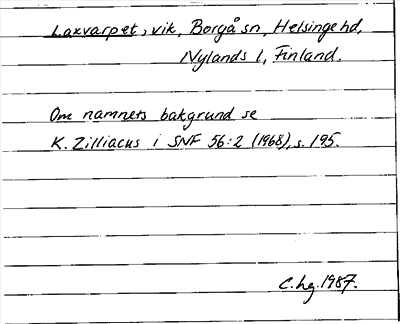 Laxvarpet, vik, Borgå sn, Helsinge hd,
Nylands l, Finland.
Om namnets bakgrund se
K. Zilliacus i SNF 56:2 (1968), s. 195.
C.hg. 1987.